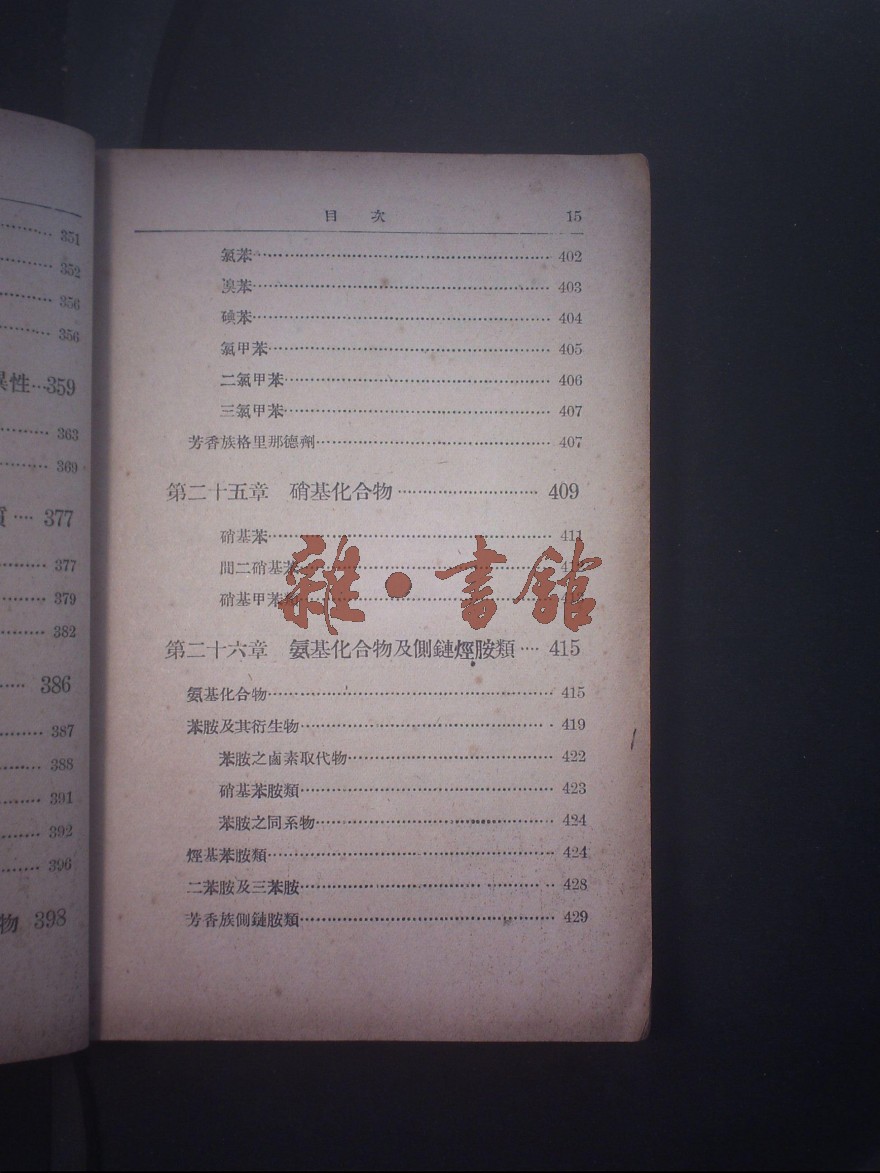 351
352
356
356
異性…359
363
369
質…377
377
379
382
386
387
388
391
392
396
物 398
目 次 15
氯苯 402
溴苯 403
碘苯 404
氯甲苯 405
二氯甲苯 406
三氯甲苯 407
芳香族格里那德劑 407
第二十五章 硝基化合物 409
硝基苯 411
間二硝基苯
硝基甲苯
雜·書館
第二十六章 氨基化合物及側鏈烴胺類 415
氨基化合物 415
苯胺及其衍生物 419
苯胺之鹵素取代物 422
硝基苯胺類 423
苯胺之同系物 424
烴基苯胺類 424
二苯胺及三苯胺 428
芳香族側鏈胺類 429